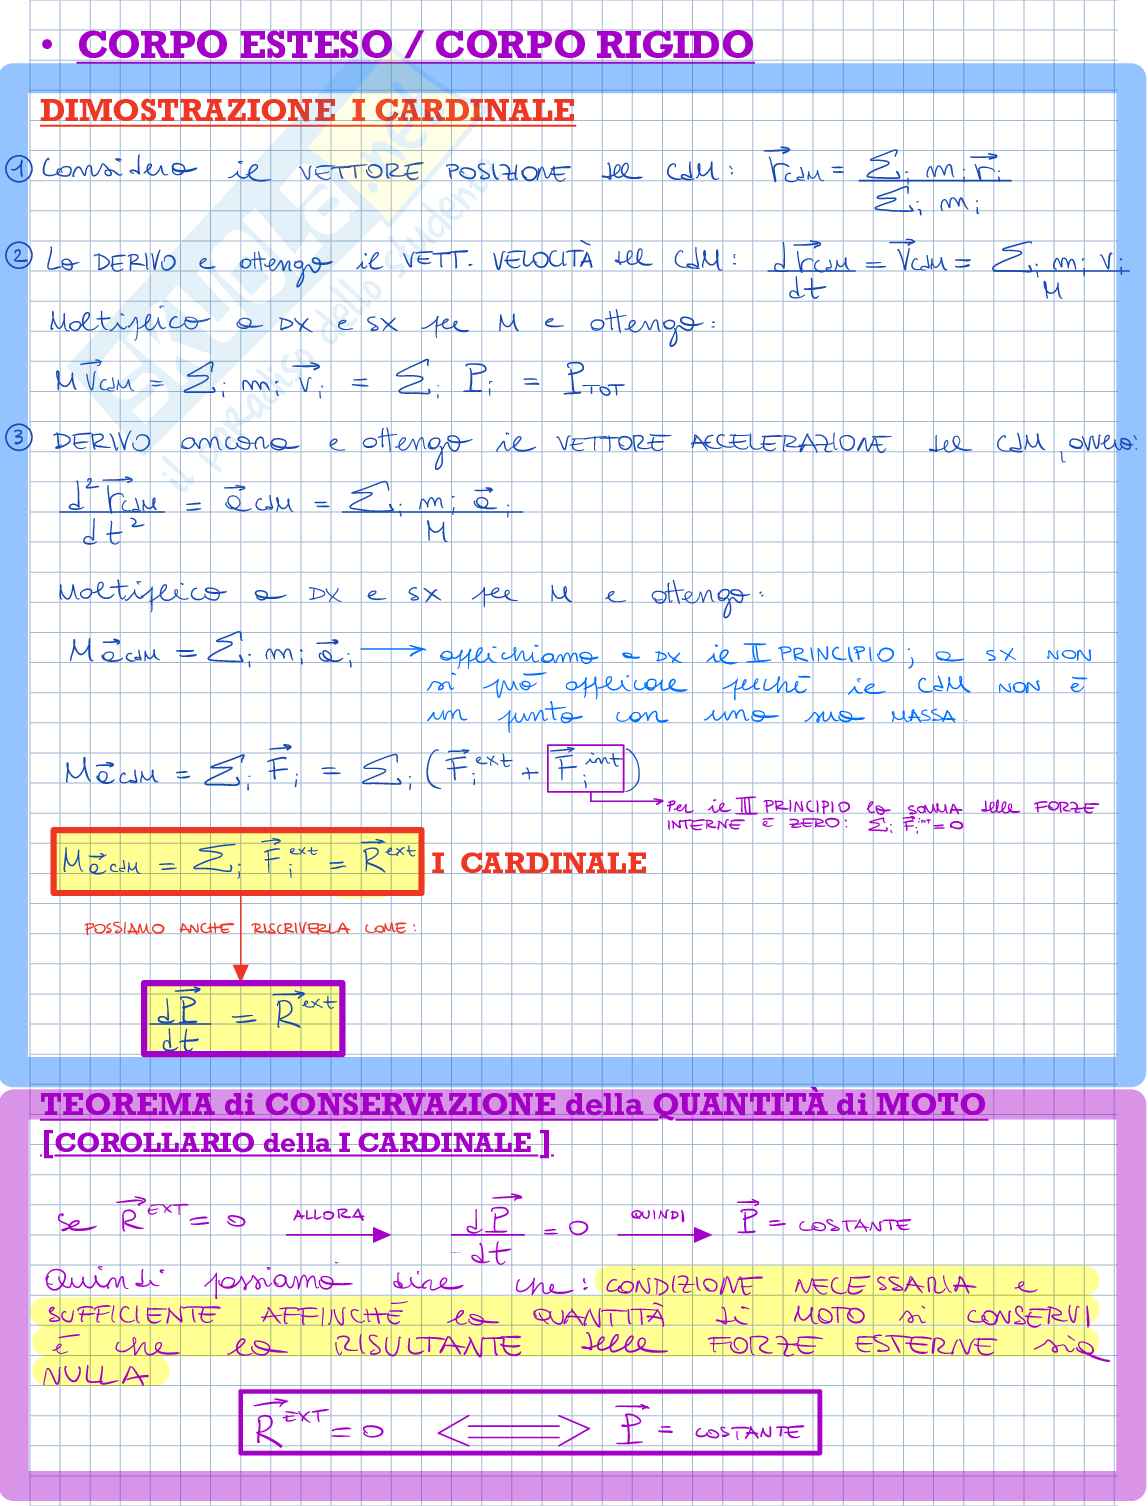 • CORPO ESTESO / CORPO RIGIDO
DIMOSTRAZIONE I CARDINALE
① Considero il VETTORE POSIZIONE del CdM: r⃗CdM = Σi mi r⃗i / Σi mi
② Lo DERIVO e ottengo il VETT. VELOCITÀ del CdM: dr⃗CdM/dt = V⃗CdM = Σi mi vi / M
Moltiplico a DX e SX per M e ottengo:
M V⃗CdM = Σi mi v⃗i = Σi P⃗i = P⃗TOT
③ DERIVO ancora e ottengo il VETTORE ACCELERAZIONE del CdM, ovvero:
d²r⃗CdM/dt² = a⃗CdM = Σi mi a⃗i / M
Moltiplico a DX e SX per M e ottengo:
M a⃗CdM = Σi mi a⃗i → applichiamo a DX il II PRINCIPIO; a SX NON
si può applicare perché il CdM NON è
un punto con una sua MASSA.
M a⃗CdM = Σi F⃗i = Σi (F⃗i ext + F⃗i int)
Per il III PRINCIPIO la SOMMA delle FORZE
INTERNE È ZERO: Σi F⃗i INT = 0
M a⃗CdM = Σi F⃗i ext = R⃗ ext I CARDINALE
POSSIAMO ANCHE RISCRIVERLA COME:
dP⃗/dt = R⃗ ext
TEOREMA di CONSERVAZIONE della QUANTITÀ di MOTO
[COROLLARIO della I CARDINALE ]
Se R⃗ EXT = 0 ALLORA → dP⃗/dt = 0 QUINDI → P⃗ = COSTANTE
Quindi possiamo dire che: CONDIZIONE NECESSARIA e
SUFFICIENTE AFFINCHÉ la QUANTITÀ di MOTO si CONSERVI
è che la RISULTANTE delle FORZE ESTERNE sia
NULLA
R⃗ EXT = 0 ⟺ P⃗ = COSTANTE
SKUOLA.net
il paradiso dello studente